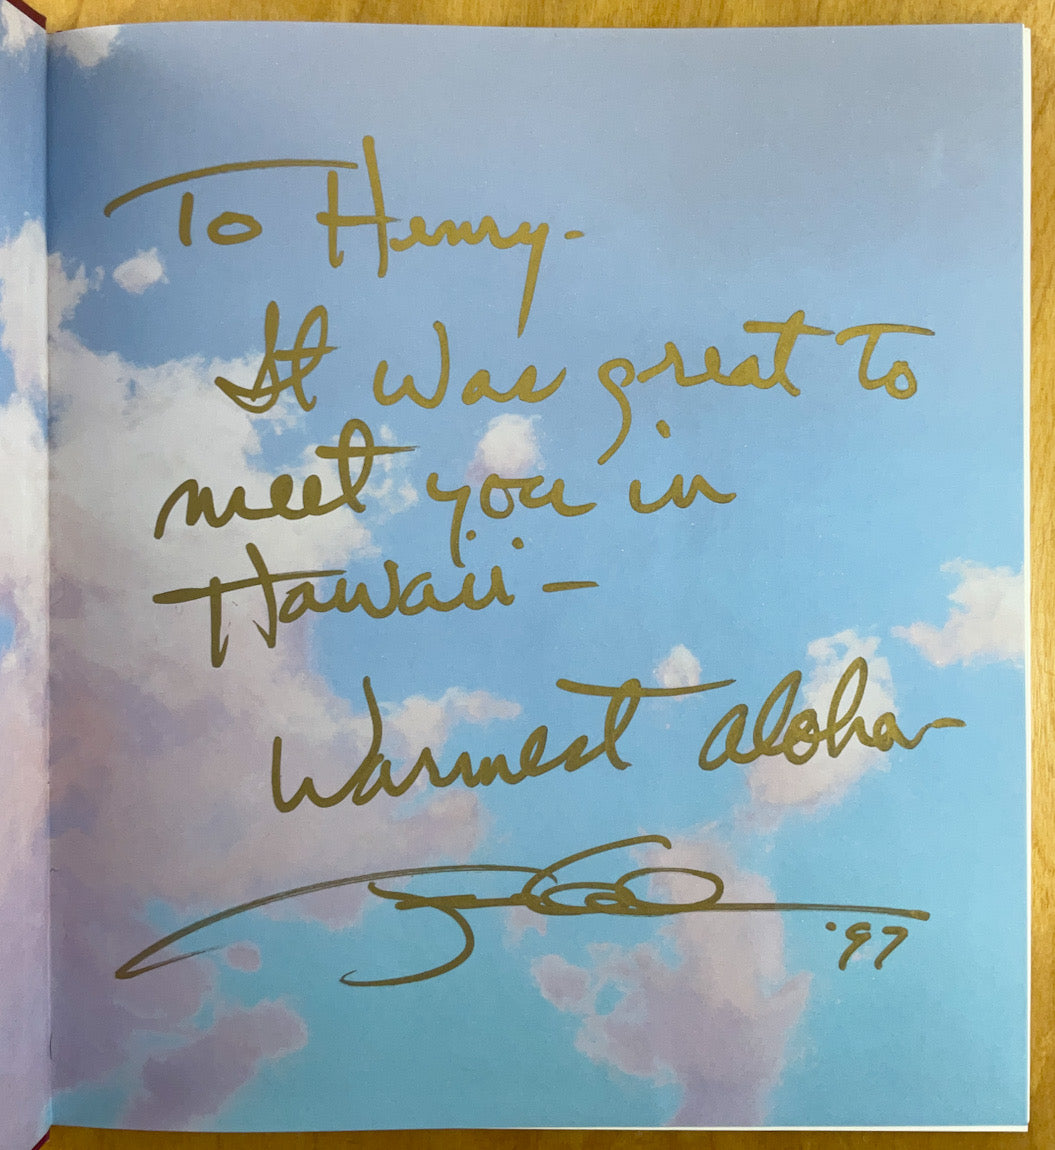 To Henry-
It was great to
meet you in
Hawaii -
Warmest aloha -
'97